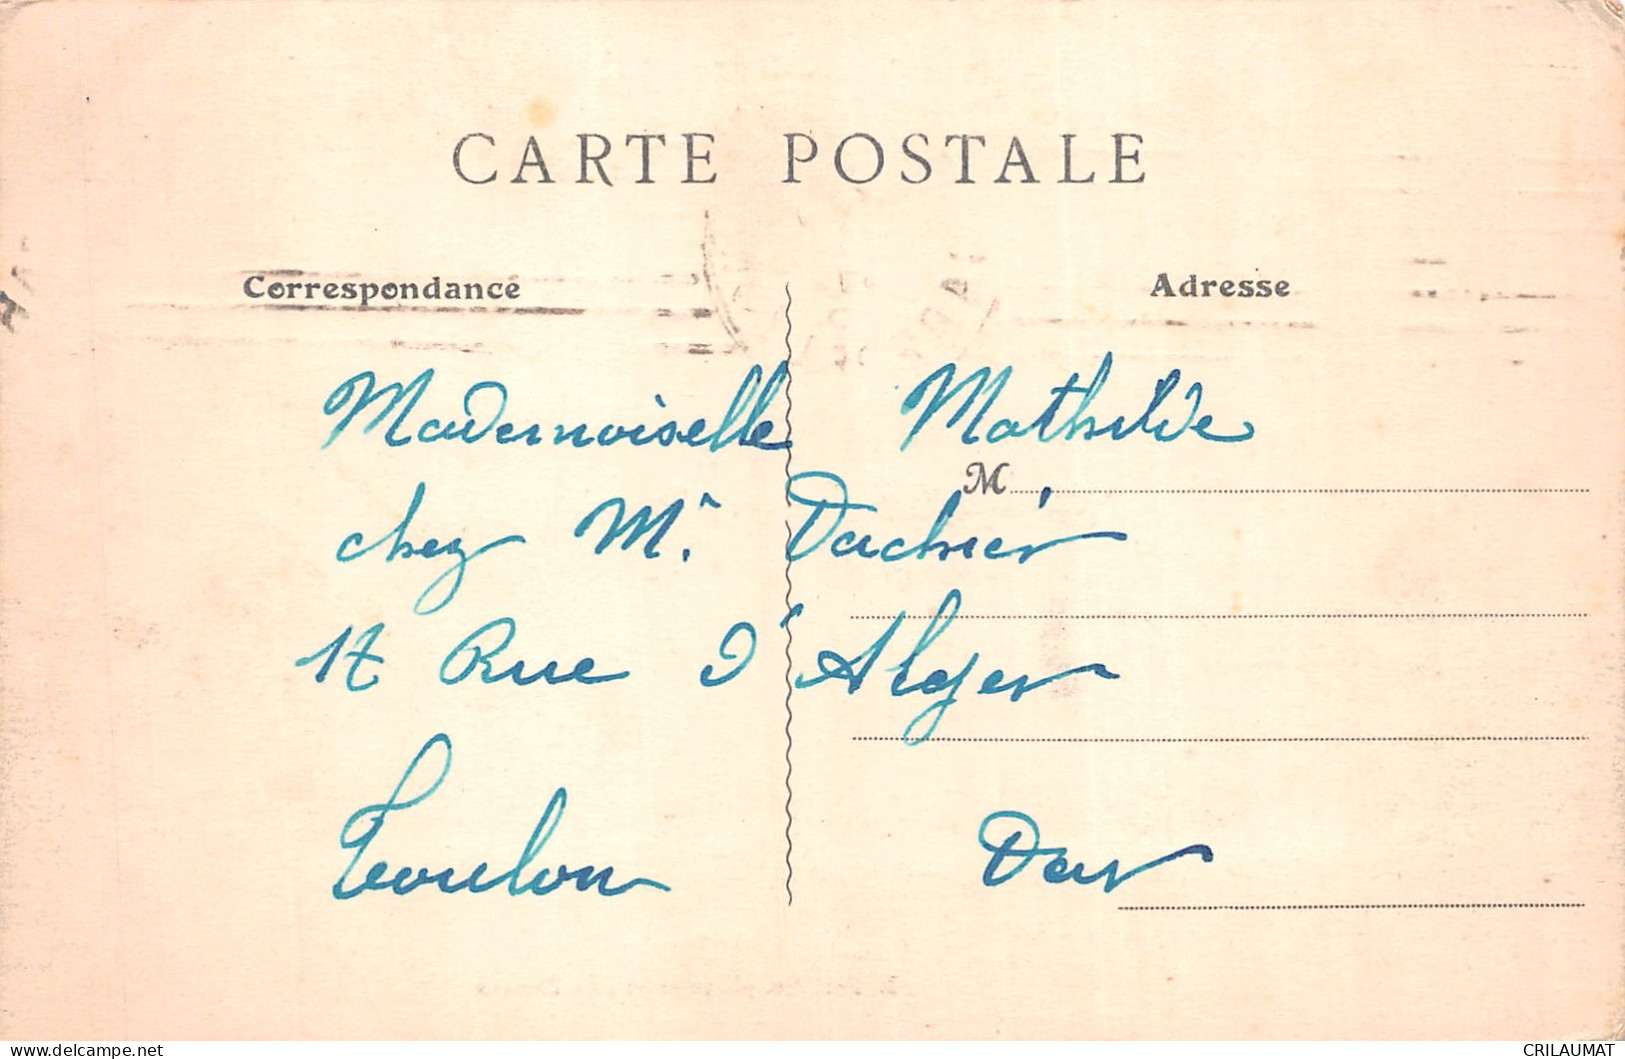 CARTE POSTALE
Correspondance
Adresse
Mademoiselle Mathilde
M
chez Mr. Dachier
17 Rue d'Alger
Toulon Var
www.delcampe.net
CRILAUMAT